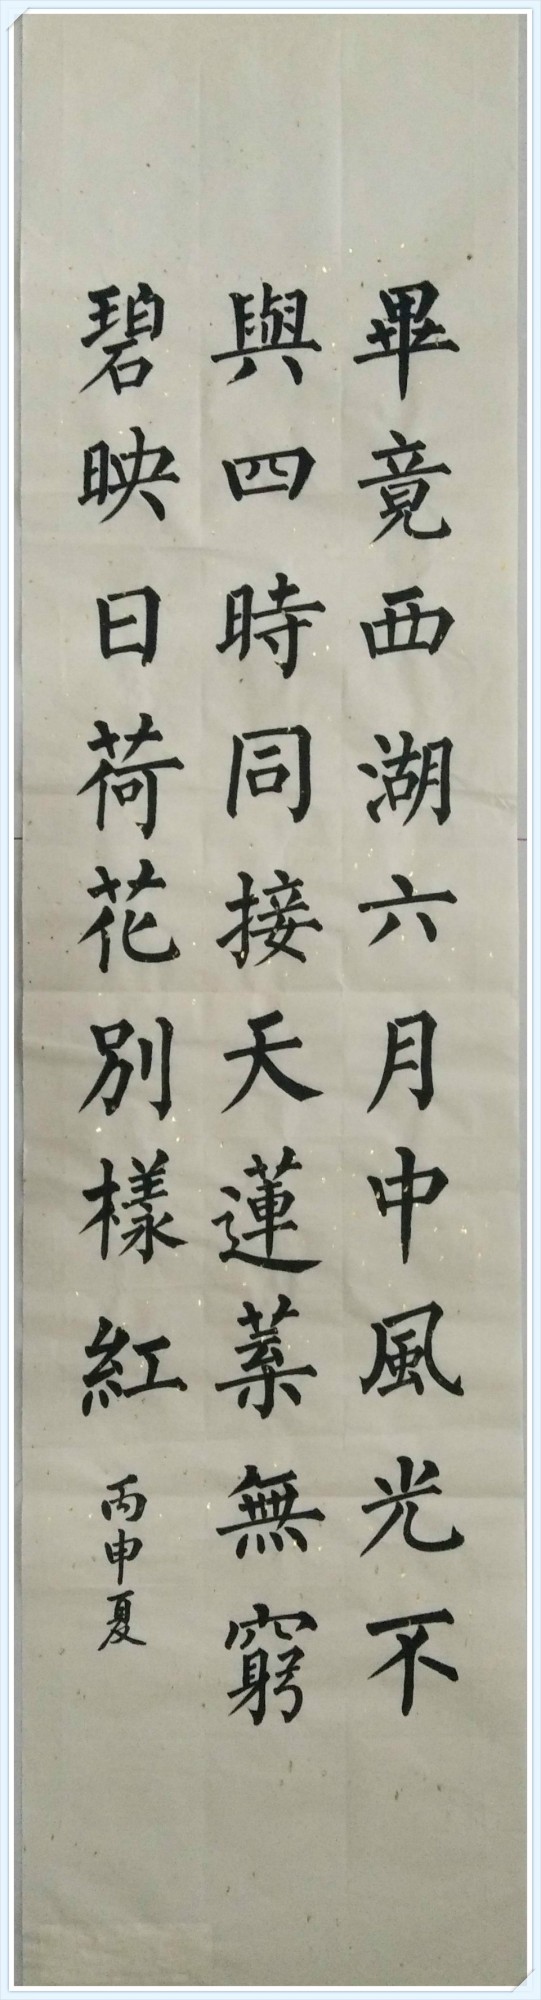 畢竟西湖六月中風光不
與四時同接天蓮葉無窮
碧映日荷花別樣紅
丙申夏